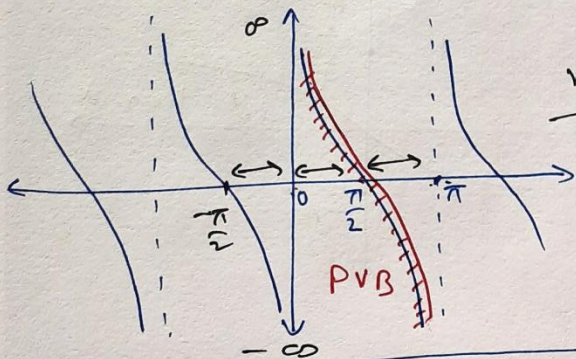 ∞
-π/2
0
π/2
π
PVB
-∞